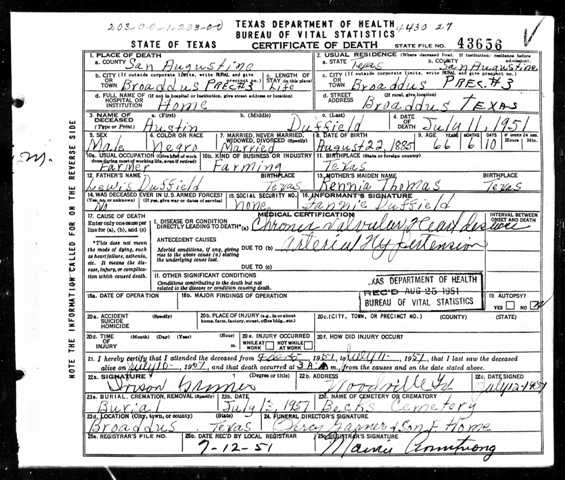 203-00-1-203-00
TEXAS DEPARTMENT OF HEALTH
4430 27
BUREAU OF VITAL STATISTICS
STATE OF TEXAS
CERTIFICATE OF DEATH
STATE FILE NO. 43656
1. PLACE OF DEATH
a. COUNTY San Augustine
2. USUAL RESIDENCE (Where deceased lived. If institution: residence before admission).
a. STATE Texas
b. COUNTY San Augustine
b. CITY (If outside corporate limits, write RURAL and give precinct no.) OR TOWN Broaddus Prec#3
c. LENGTH OF STAY (in this place) Life
c. CITY (If outside corporate limits, write RURAL and give precinct no.) OR TOWN Broaddus Prec.#3
d. FULL NAME OF (If not in hospital or institution, give street address or location) HOSPITAL OR INSTITUTION Home
d. STREET ADDRESS Broaddus Texas
3. NAME OF DECEASED (Type or Print)
a. (First) Austin
b. (Middle)
c. (Last) Duffield
4. DATE OF DEATH July 11, 1951
5. SEX Male
6. COLOR OR RACE Negro
7. MARRIED, NEVER MARRIED, WIDOWED, DIVORCED (Specify) Married
8. DATE OF BIRTH August 22, 1885
9. AGE 66
10a. USUAL OCCUPATION (Give kind of work done during most of working life, even if retired) Farmer
10b. KIND OF BUSINESS OR INDUSTRY Farming
11. BIRTHPLACE (State or foreign country) Texas
12. FATHER'S NAME Lewis Duffield
BIRTHPLACE Texas
13. MOTHER'S MAIDEN NAME Rennia Thomas
BIRTHPLACE Texas
14. WAS DECEASED EVER IN U.S. ARMED FORCES? (Yes, no, or unknown) (If yes, give war or dates of service) No
15. SOCIAL SECURITY NO. none
16. INFORMANT'S SIGNATURE Fannie Duffield
17. CAUSE OF DEATH
Enter only one cause per line for (a), (b), and (c)
*This does not mean the mode of dying, such as heart failure, asthenia, etc. It means the disease, injury, or complication which caused death.
MEDICAL CERTIFICATION
INTERVAL BETWEEN ONSET AND DEATH
I. DISEASE OR CONDITION DIRECTLY LEADING TO DEATH*(a) Chronic Valvular Heart disease
ANTECEDENT CAUSES
Morbid conditions, if any, giving rise to the above cause (a) stating the underlying cause last.
DUE TO (b) arterial Hypertension
DUE TO (c)
II. OTHER SIGNIFICANT CONDITIONS
Conditions contributing to the death but not related to the disease or condition causing death.
TEXAS DEPARTMENT OF HEALTH
REC'D AUG 25 1951
BUREAU OF VITAL STATISTICS
18a. DATE OF OPERATION
18b. MAJOR FINDINGS OF OPERATION
19. AUTOPSY?
YES NO
20a. ACCIDENT SUICIDE HOMICIDE (Specify)
20b. PLACE OF INJURY (e.g., in or about home, farm, factory, street, office bldg., etc.)
20c. (CITY, TOWN, OR PRECINCT NO.) (COUNTY) (STATE)
20d. TIME OF INJURY (Month) (Day) (Year) (Hour)
20e. INJURY OCCURRED WHILE AT WORK NOT WHILE AT WORK
20f. HOW DID INJURY OCCUR?
21. I hereby certify that I attended the deceased from 1951, to July 11, 1951, that I last saw the deceased
alive on July 10, 1951, and that death occurred at 3 A.m., from the causes and on the date stated above.
22a. SIGNATURE (Degree or title)
22b. ADDRESS Woodville
22c. DATE SIGNED July 12 1951
23a. BURIAL, CREMATION, REMOVAL (Specify) Burial
23b. DATE July 12, 1951
23c. NAME OF CEMETERY OR CREMATORY Bech Cemetery
23d. LOCATION (City, town, or county) (State) Broaddus Texas
24. FUNERAL DIRECTOR'S SIGNATURE Percy Garner & Son F. Home
25a. REGISTRAR'S FILE NO.
25b. DATE REC'D BY LOCAL REGISTRAR 7-12-51
25c. REGISTRAR'S SIGNATURE Armstrong
NOTE THE INFORMATION CALLED FOR ON THE REVERSE SIDE
m.